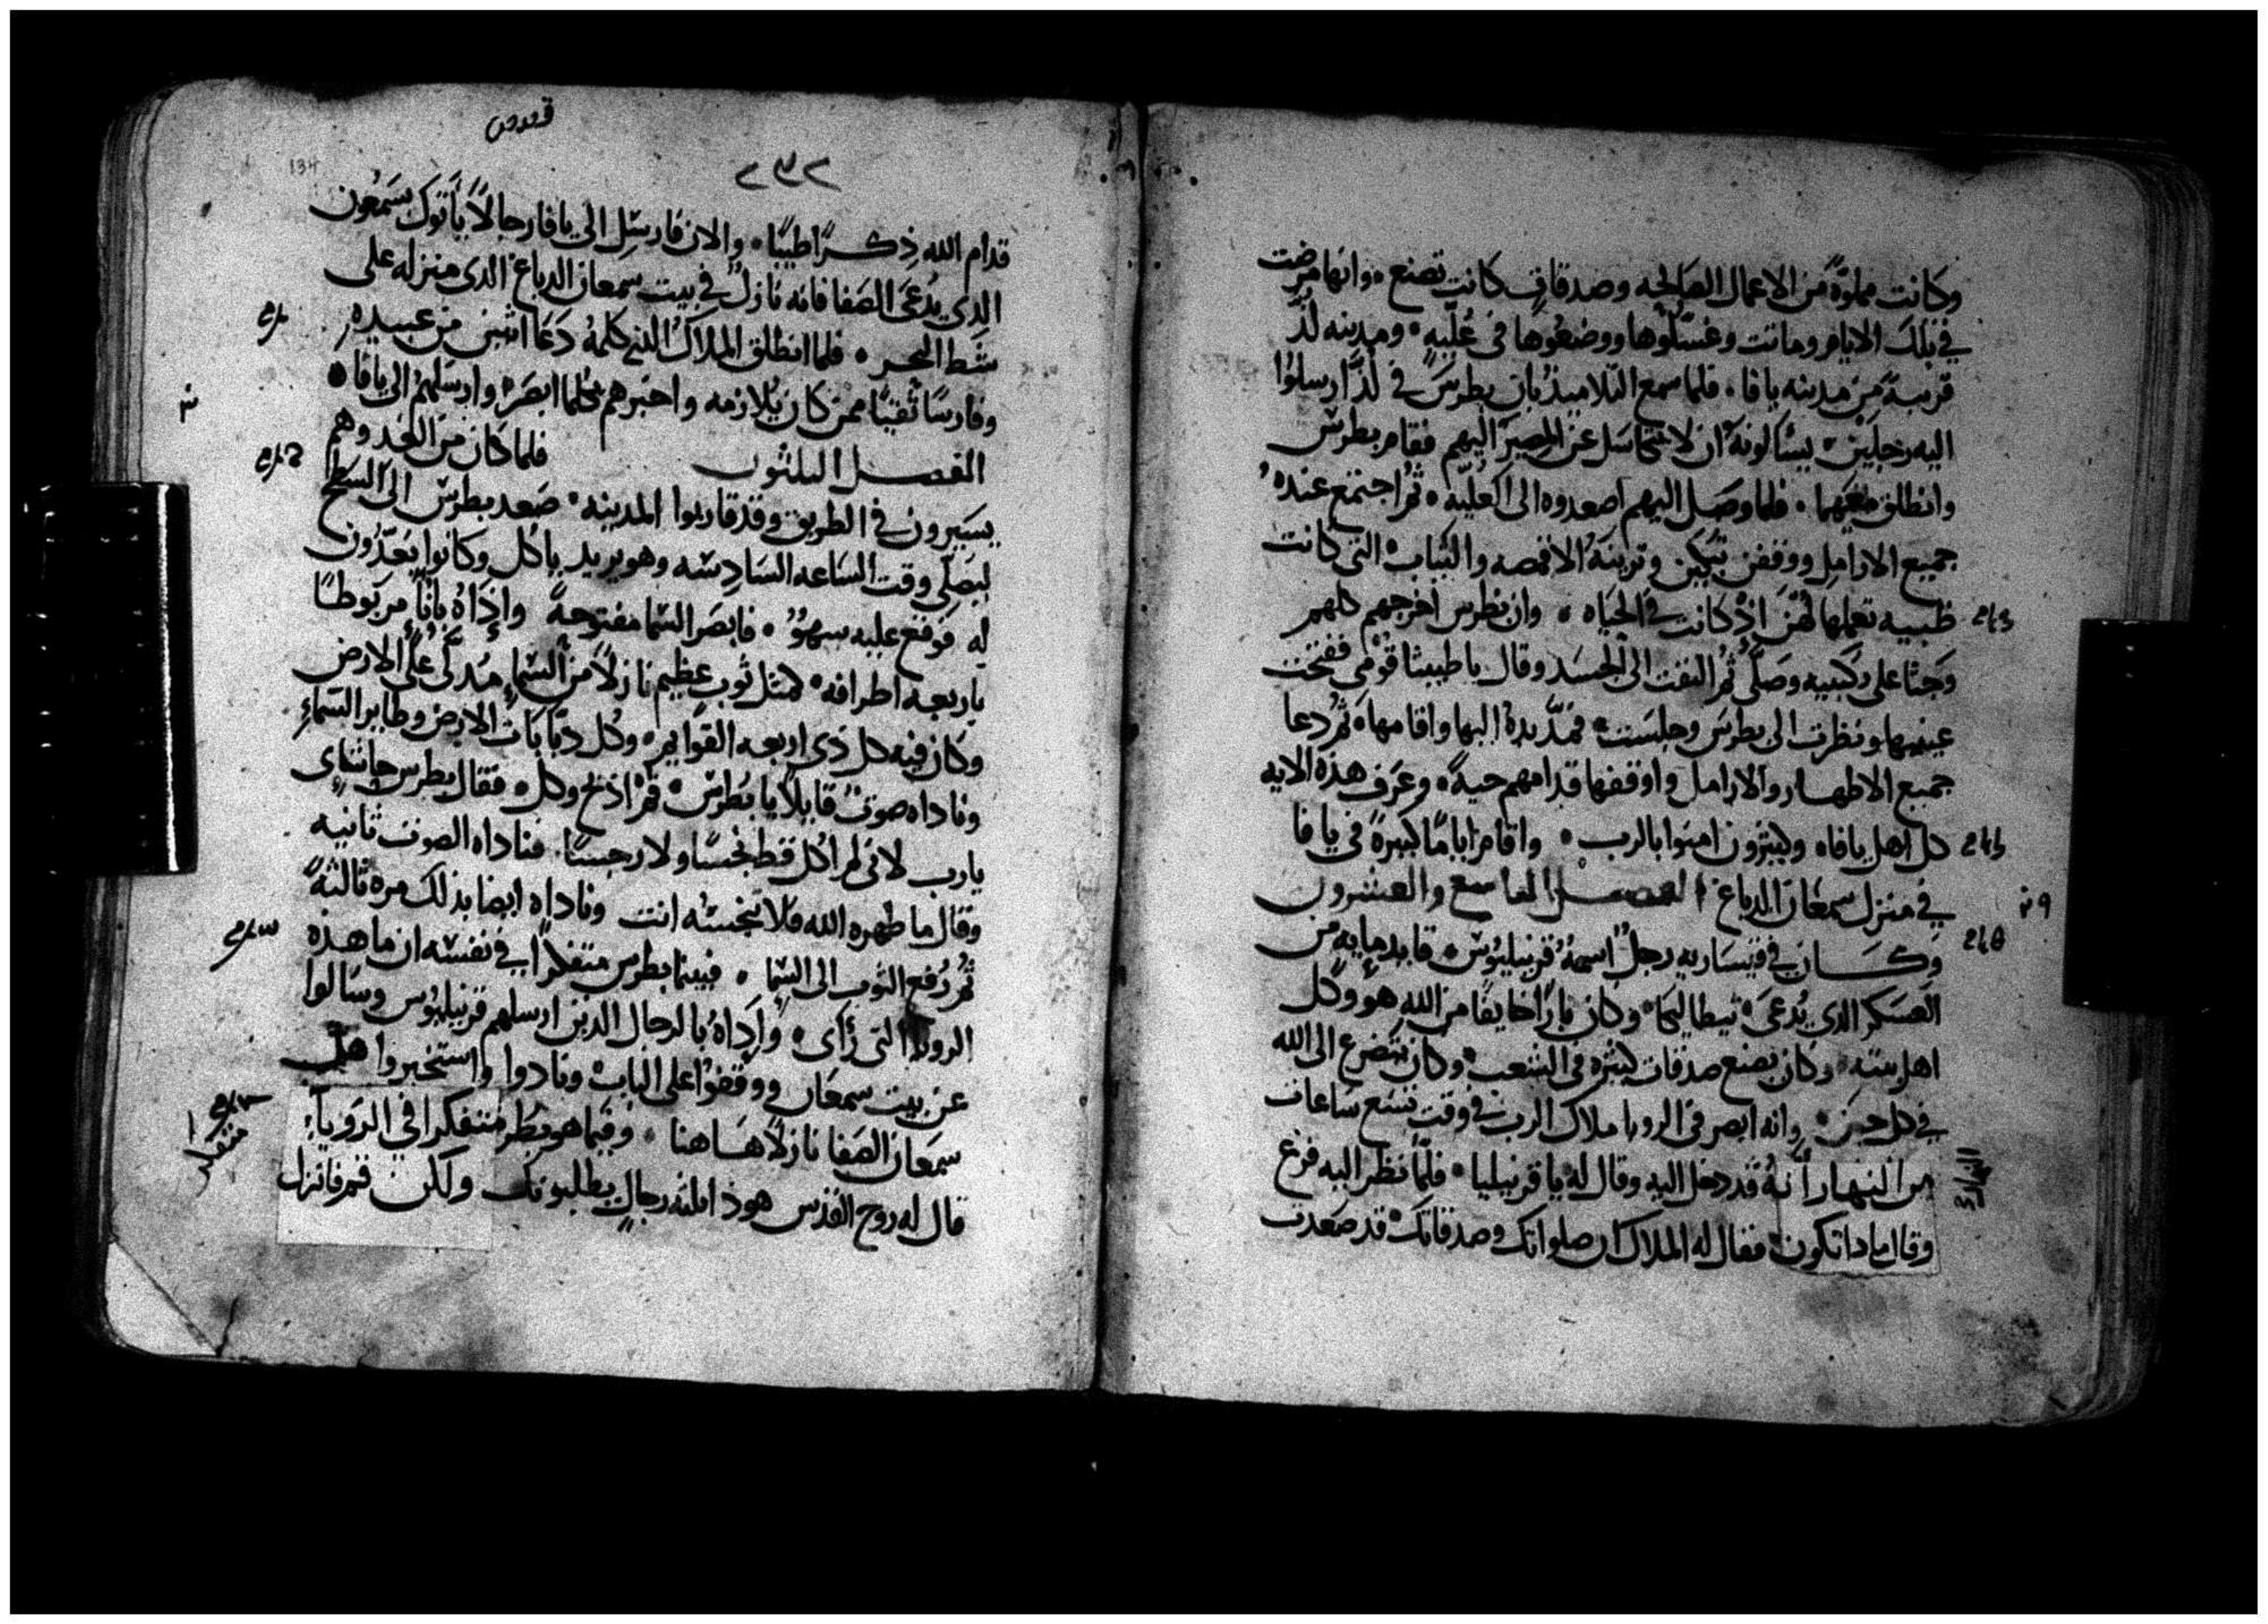 وكانت مملوّةً من الاعمال الصالحه وصدقاتٍ كانت تصنع ٠ وانها مرضت
في تلك الايام وماتت وغسّلوها ووضعوها في عُلّيه ٠ ومدينه لُدّ
قريبةً من مدينه يافا ٠ فلما سمع التلاميذ بان بطرس في لُدّ ارسلوا
اليه رجلين يسالونه ان لا يتكاسل عن المصير اليهم فقام بطرس
وانطلق معهما ٠ فلما وصل اليهم اصعدوه الى العليّه ٠ ثم اجتمع عنده
جميع الارامل ووقفن تبكين وترينه الاقمصه والثياب التي كانت
ظبيه تعملها لهنّ اذ كانت في الحياه ٠ وان بطرس اخرجهم كلهم
وجثا على ركبتيه وصلّى ثم التفت الى الجسد وقال يا طبيثا قومي ففتحت
عينيها ونظرت الى بطرس وجلست ٠ فمدّ يده اليها واقامها ٠ ثم دعا
جميع الاطهار والارامل واوقفها قدامهم حيةً ٠ وعرف هذه الايه
كل اهل يافا ٠ وكثيرون امنوا بالرب ٠ واقام اياماً كثيرةً في يافا
في منزل سمعان الدباغ ٠ الفصل التاسع والعشرون
وكان في قيساريه رجلٌ اسمهُ قرنيليوس قايد مايه من
العسكر الذي يُدعى ايطاليقا ٠ وكان باراً خايفاً من الله هو وكل
اهل بيته ٠ وكان يصنع صدقات كثيره في الشعب وكان يتضرع الى الله
في كل حين ٠ وانه ابصر في الرويا ملاك الرب في وقت تسع ساعات
من النهار انهُ قد دخل اليه وقال له يا قرنيليا ٠ فلمّا نظر اليه فزع
وقال ماذا تكون فقال له الملاك ان صلواتك وصدقاتك قد صعدت
٢٣٢
134
قدام الله ذكراً طيباً ٠ والان فارسل الى يافا رجالاً ياتوك بسمعون
الذي يُدعى الصفا فانه نازلٌ في بيت سمعان الدباغ الذي منزله على
شط البحر ٠ فلما انطلق الملاك الذي كلمهُ دعا اثنين من عبيده
وفارساً تقياً ممن كان يُلازمه واخبرهم بكلما ابصر وارسلهم الى يافا ٠
الفصل الثلثون فلما كان من الغد وهم
يسيرون في الطريق وقد قاربوا المدينه ٠ صعد بطرس الى السطح
ليصلّي وقت الساعه السادسه وهو يريد ياكل وكانوا يعدّون
له فوقع عليه سهوٌ ٠ فابصر السما مفتوحةً واذا اناءٌ مربوطاً
باربعه اطرافه كمثل ثوب عظيم نازلاً من السماء مُدلّى على الارض
وكان فيه كل ذي اربعه القوايم وكل دبابات الارض وطاير السماء
وناداه صوتٌ قايلاً يا بطرس قم اذبح وكل ٠ فقال بطرس حاشاي
يا رب لاني لم اكل قط نجساً ولا رجساً ٠ فناداه الصوت ثانيه
وقال ما طهره الله فلا تنجسه انت وناداه ايضا بذلك مره ثالثةً
ثم رُفع الثوب الى السما ٠ فبينما بطرس متفكراً في نفسه ان ما هذه
الرويا التي رأى ٠ واذاهُ بالرجال الذين ارسلهم قرنيليوس وسالوا
عن بيت سمعان ووقفوا على الباب ونادوا واستخبروا هل
سمعان الصفا نازلاً هاهنا ٠ وفيما هو بطرس متفكرا في الرويا
قال له روح القدس هوذا ثلثه رجال يطلبونك ولكن قم فانزل